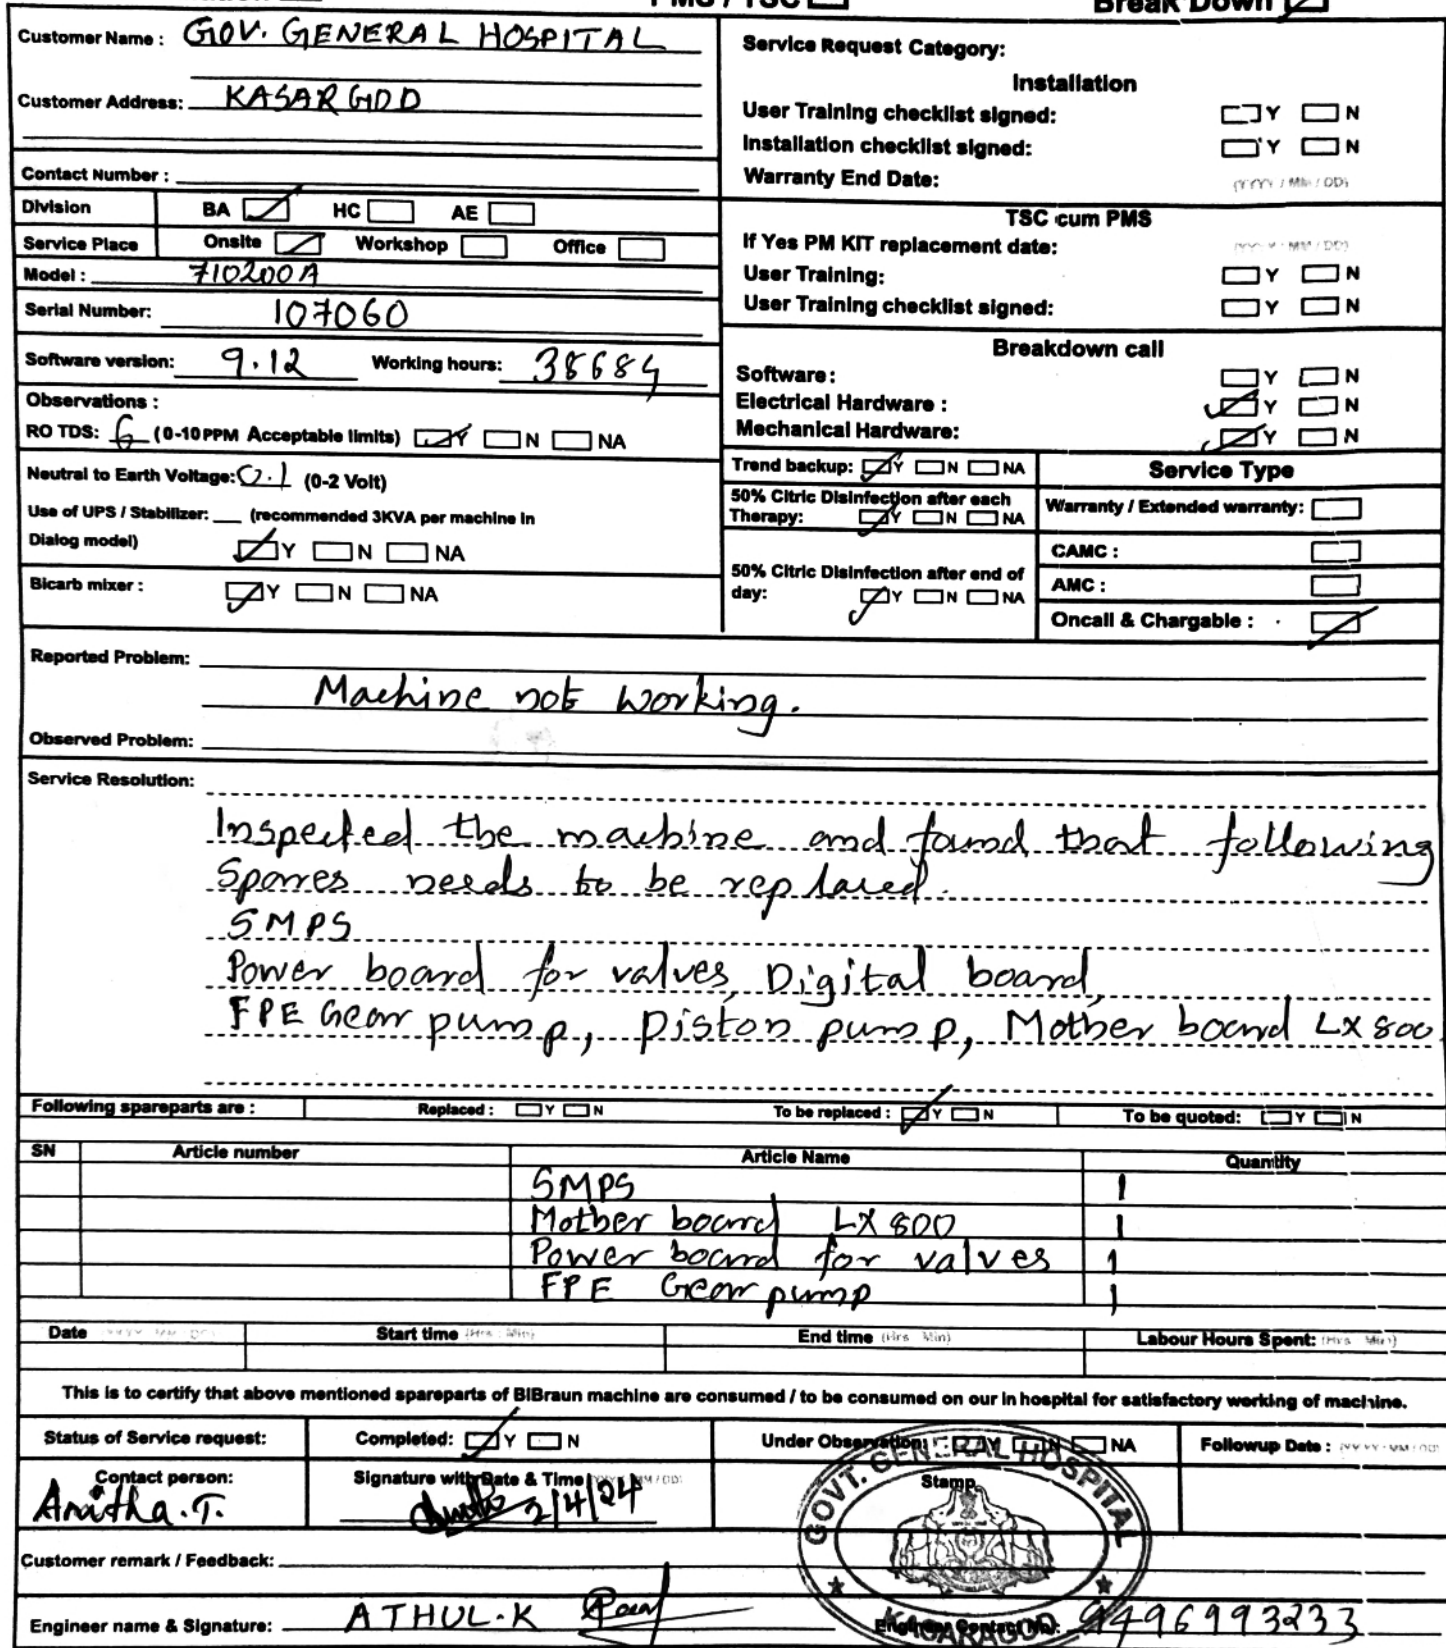 PMS / TSC
Break Down
Customer Name : GOV. GENERAL HOSPITAL
Customer Address: KASARGOD
Contact Number :
Division BA HC AE
Service Place Onsite Workshop Office
Model : 710200A
Serial Number: 107060
Software version: 9.12 Working hours: 38684
Observations :
RO TDS: 6 (0-10 PPM Acceptable limits) Y N NA
Neutral to Earth Voltage: 0.1 (0-2 Volt)
Use of UPS / Stabilizer: (recommended 3KVA per machine in
Dialog model) Y N NA
Bicarb mixer : Y N NA
Service Request Category:
Installation
User Training checklist signed: Y N
Installation checklist signed: Y N
Warranty End Date: (YYYY / MM / DD)
TSC cum PMS
If Yes PM KIT replacement date: (YYYY / MM / DD)
User Training: Y N
User Training checklist signed: Y N
Breakdown call
Software : Y N
Electrical Hardware : Y N
Mechanical Hardware: Y N
Trend backup: Y N NA
50% Citric Disinfection after each
Therapy: Y N NA
50% Citric Disinfection after end of
day: Y N NA
Service Type
Warranty / Extended warranty:
CAMC :
AMC :
Oncall & Chargable :
Reported Problem:
Machine not working.
Observed Problem:
Service Resolution:
Inspected the machine and found that following
Spares needs to be replaced.
SMPS
Power board for valves, Digital board,
FPE Gear pump, piston pump, Mother board LX 800
Following spareparts are : Replaced : Y N To be replaced : Y N To be quoted: Y N
SN Article number Article Name Quantity
SMPS 1
Mother board LX 800 1
Power board for valves 1
FPE Gear pump 1
Date (YYYY / MM / DD) Start time (Hrs : Min) End time (Hrs : Min) Labour Hours Spent: (Hrs : Min)
This is to certify that above mentioned spareparts of BIBraun machine are consumed / to be consumed on our in hospital for satisfactory working of machine.
Status of Service request: Completed: Y N Under Observation: Y N NA Followup Date : (YYYY / MM / DD)
Contact person: Signature with Date & Time (YYYY / MM / DD) Stamp
Anitha.T. 2/4/24
GOVT. GENERAL HOSPITAL
KASARAGOD
Customer remark / Feedback:
Engineer name & Signature: ATHUL.K Engineer Contact No: 9496993233